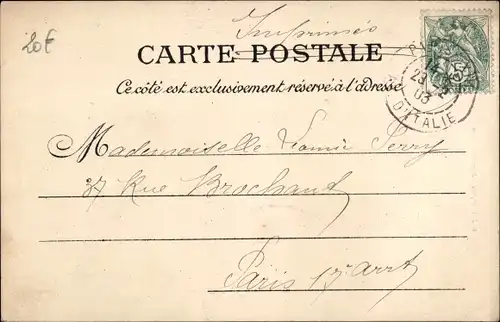 20€
Imprimés
CARTE POSTALE
Ce côté est exclusivement réservé à l'adresse
5
PARIS
23
03
D'ITALIE
Mademoiselle Léonie Ferry
37 Rue Brochant
Paris 17e arrt